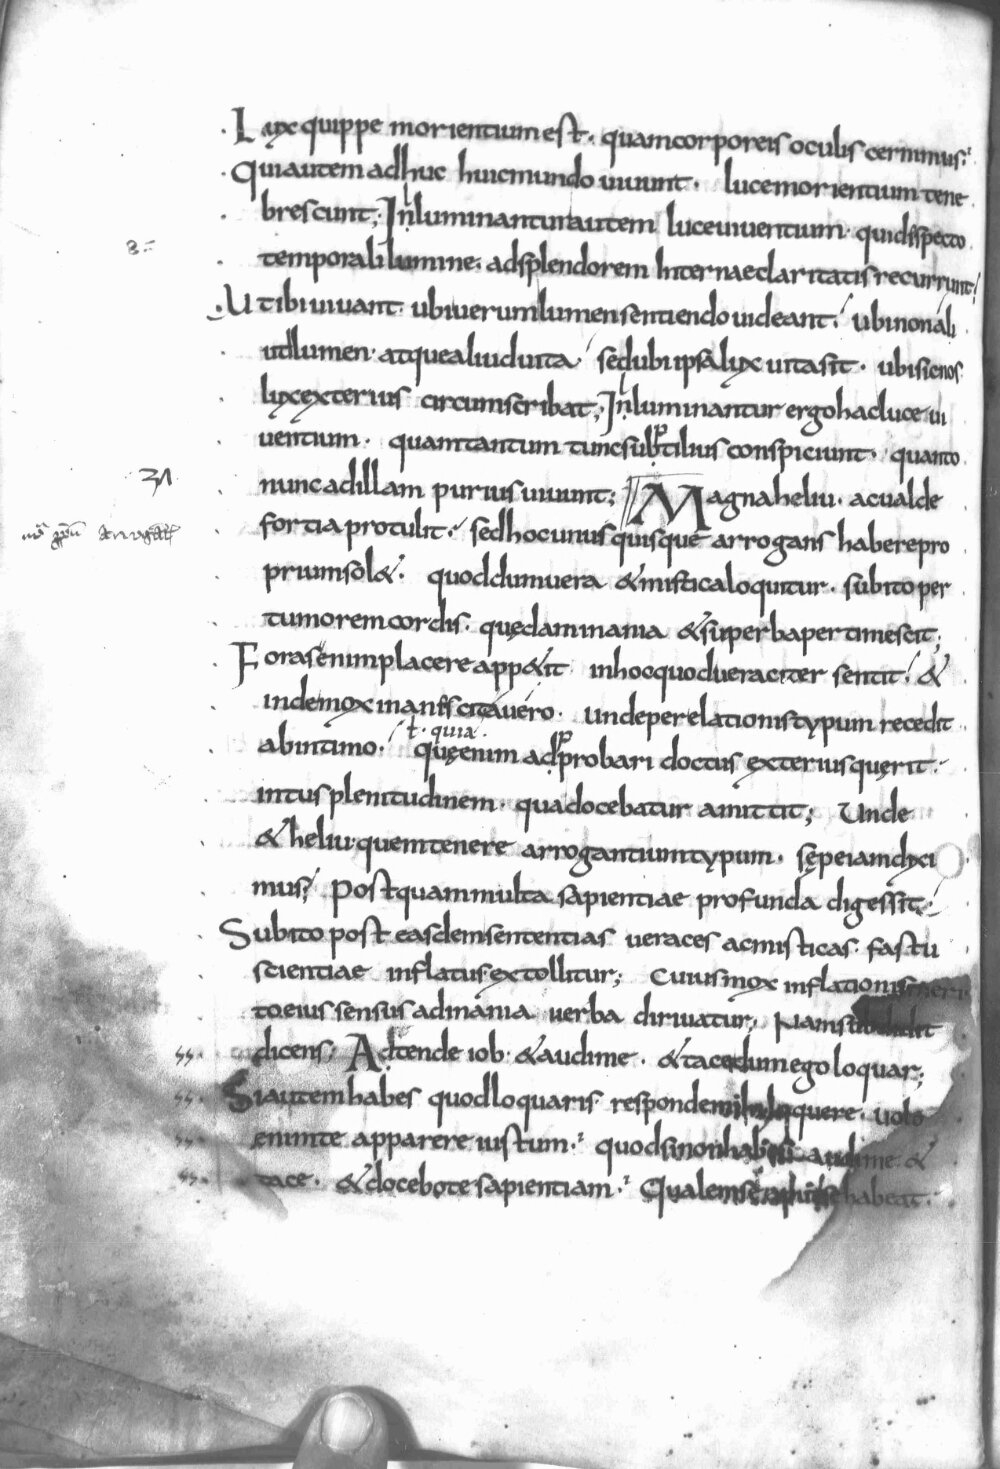 Lux quippe morientium est. quam corporeis oculis cernimus;
Qui autem adhuc huic mundo uiuunt. luce morientium tene
brescunt; Inluminantur autem luce uiuentium. qui dispecto
temporali lumine. ad splendorem internae claritatis recurrunt;
Ut ibi uiuant. ubi uerum lumen sentiendo uideant; ubi non ali
ud lumen. atque aliud uita; sed ubi ipsa lux uita sit. ubi sic nos
lux exterius circumscribat; Inluminantur ergo hac luce ui
uentium. quam tantum tunc subtilius conspiciunt. quanto
nunc ad illam purius uiuunt; Magna heliu. ac ualde
fortia protulit; sed hoc unusquisque arrogans habere pro
prium sol&. quod dum uera & mistica loquitur. subito per
tumorem cordis. quędam inania & superba pertimescit;
Foras enim placere app&it in hoc quod ueraciter sentit; &
inde mox inanescit a uero. unde per elationis typum recedit
ab intimo.
ł. quia.
quę enim adprobari doctus exterius quęrit.
intus plenitudinem. qua docebatur amittit; Unde
& heliu. quem tenere arrogantium typum. sępe iam dixi
mus; Postquam multa sapientiae profunda digessit;
Subito post easdem sententias ueraces ac misticas. fastu
scientiae inflatus extollitur; Cuius mox inflationis meri
to eius sensus ad inania uerba diriuatur; Nam subdidit
dicens; Adtende iob. & audi me. & tace dum ego loquar;
Si autem habes quod loquaris. responde mihi loquere. uolo
enim te apparere iustum. quod si non habes audi me &
tace. & docebo te sapientiam. Qualem se habeat.